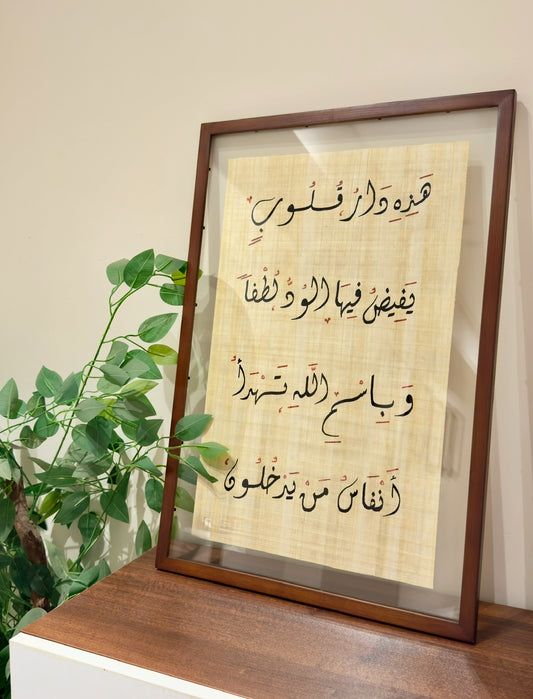 هَذِهِ دَارُ قُلُوبٍ
يَفِيضُ فِيهَا الوُدُّ لُطْفاً
وَبِاسْمِ اللَّهِ تَهْدَأُ
أَنْفَاسُ مَنْ يَدْخُلُونَ